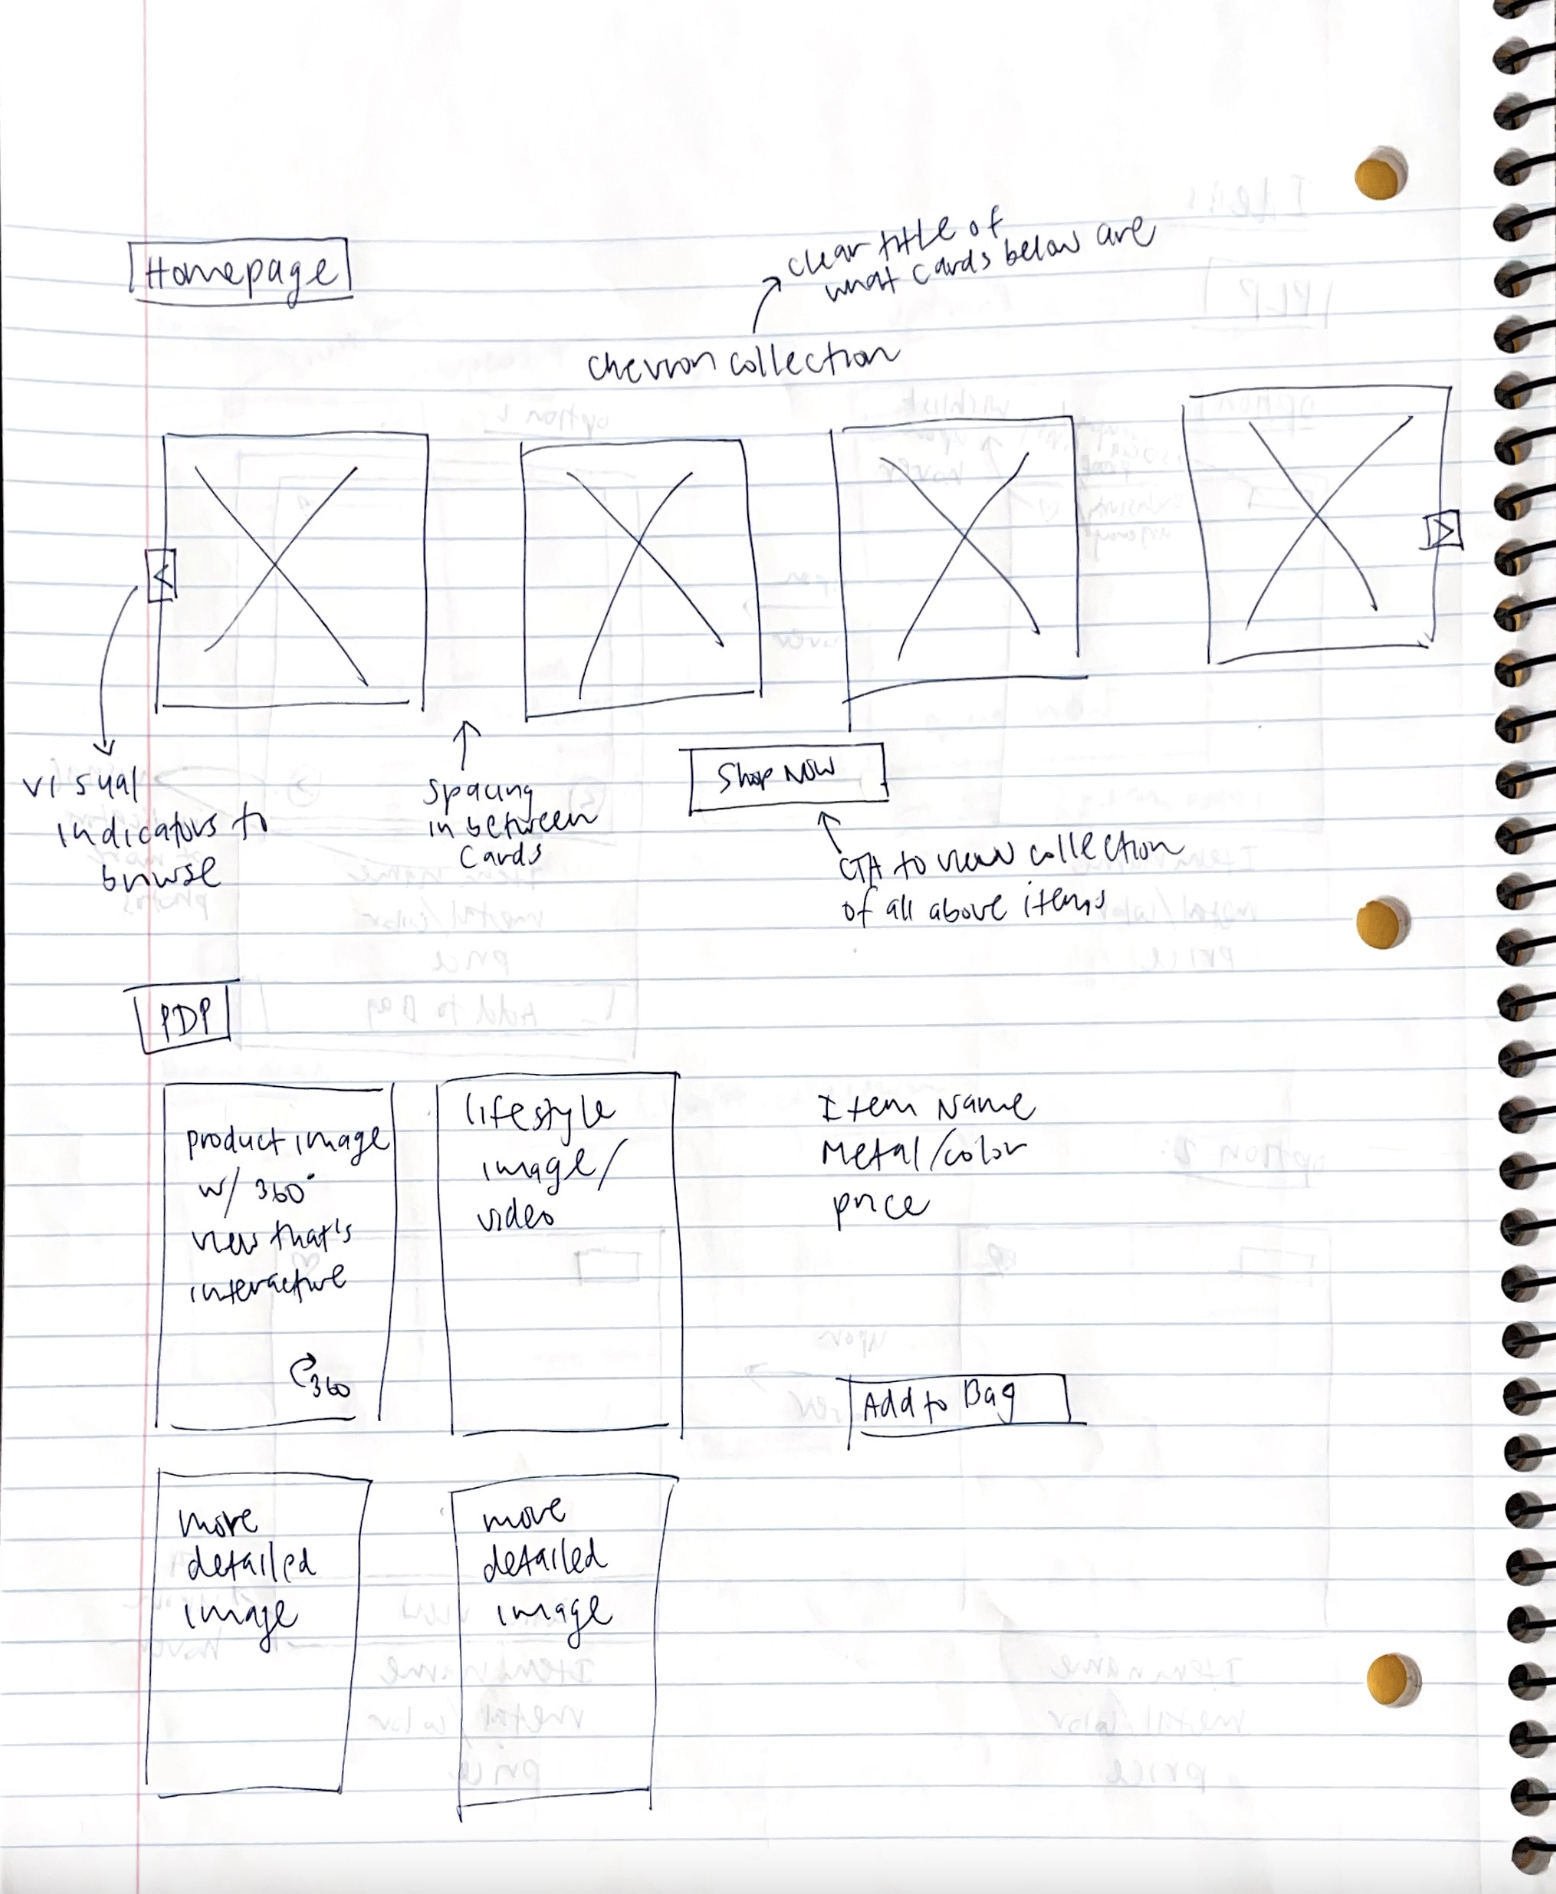 Homepage
clear title of
what cards below are
Chevron collection
<
>
visual
indicators to
browse
spacing
in between
cards
Shop NOW
CTA to view collection
of all above items
PDP
product image
w/ 360°
view that's
interactive
360
lifestyle
image/
video
Item Name
Metal/color
price
Add to Bag
more
detailed
image
more
detailed
image